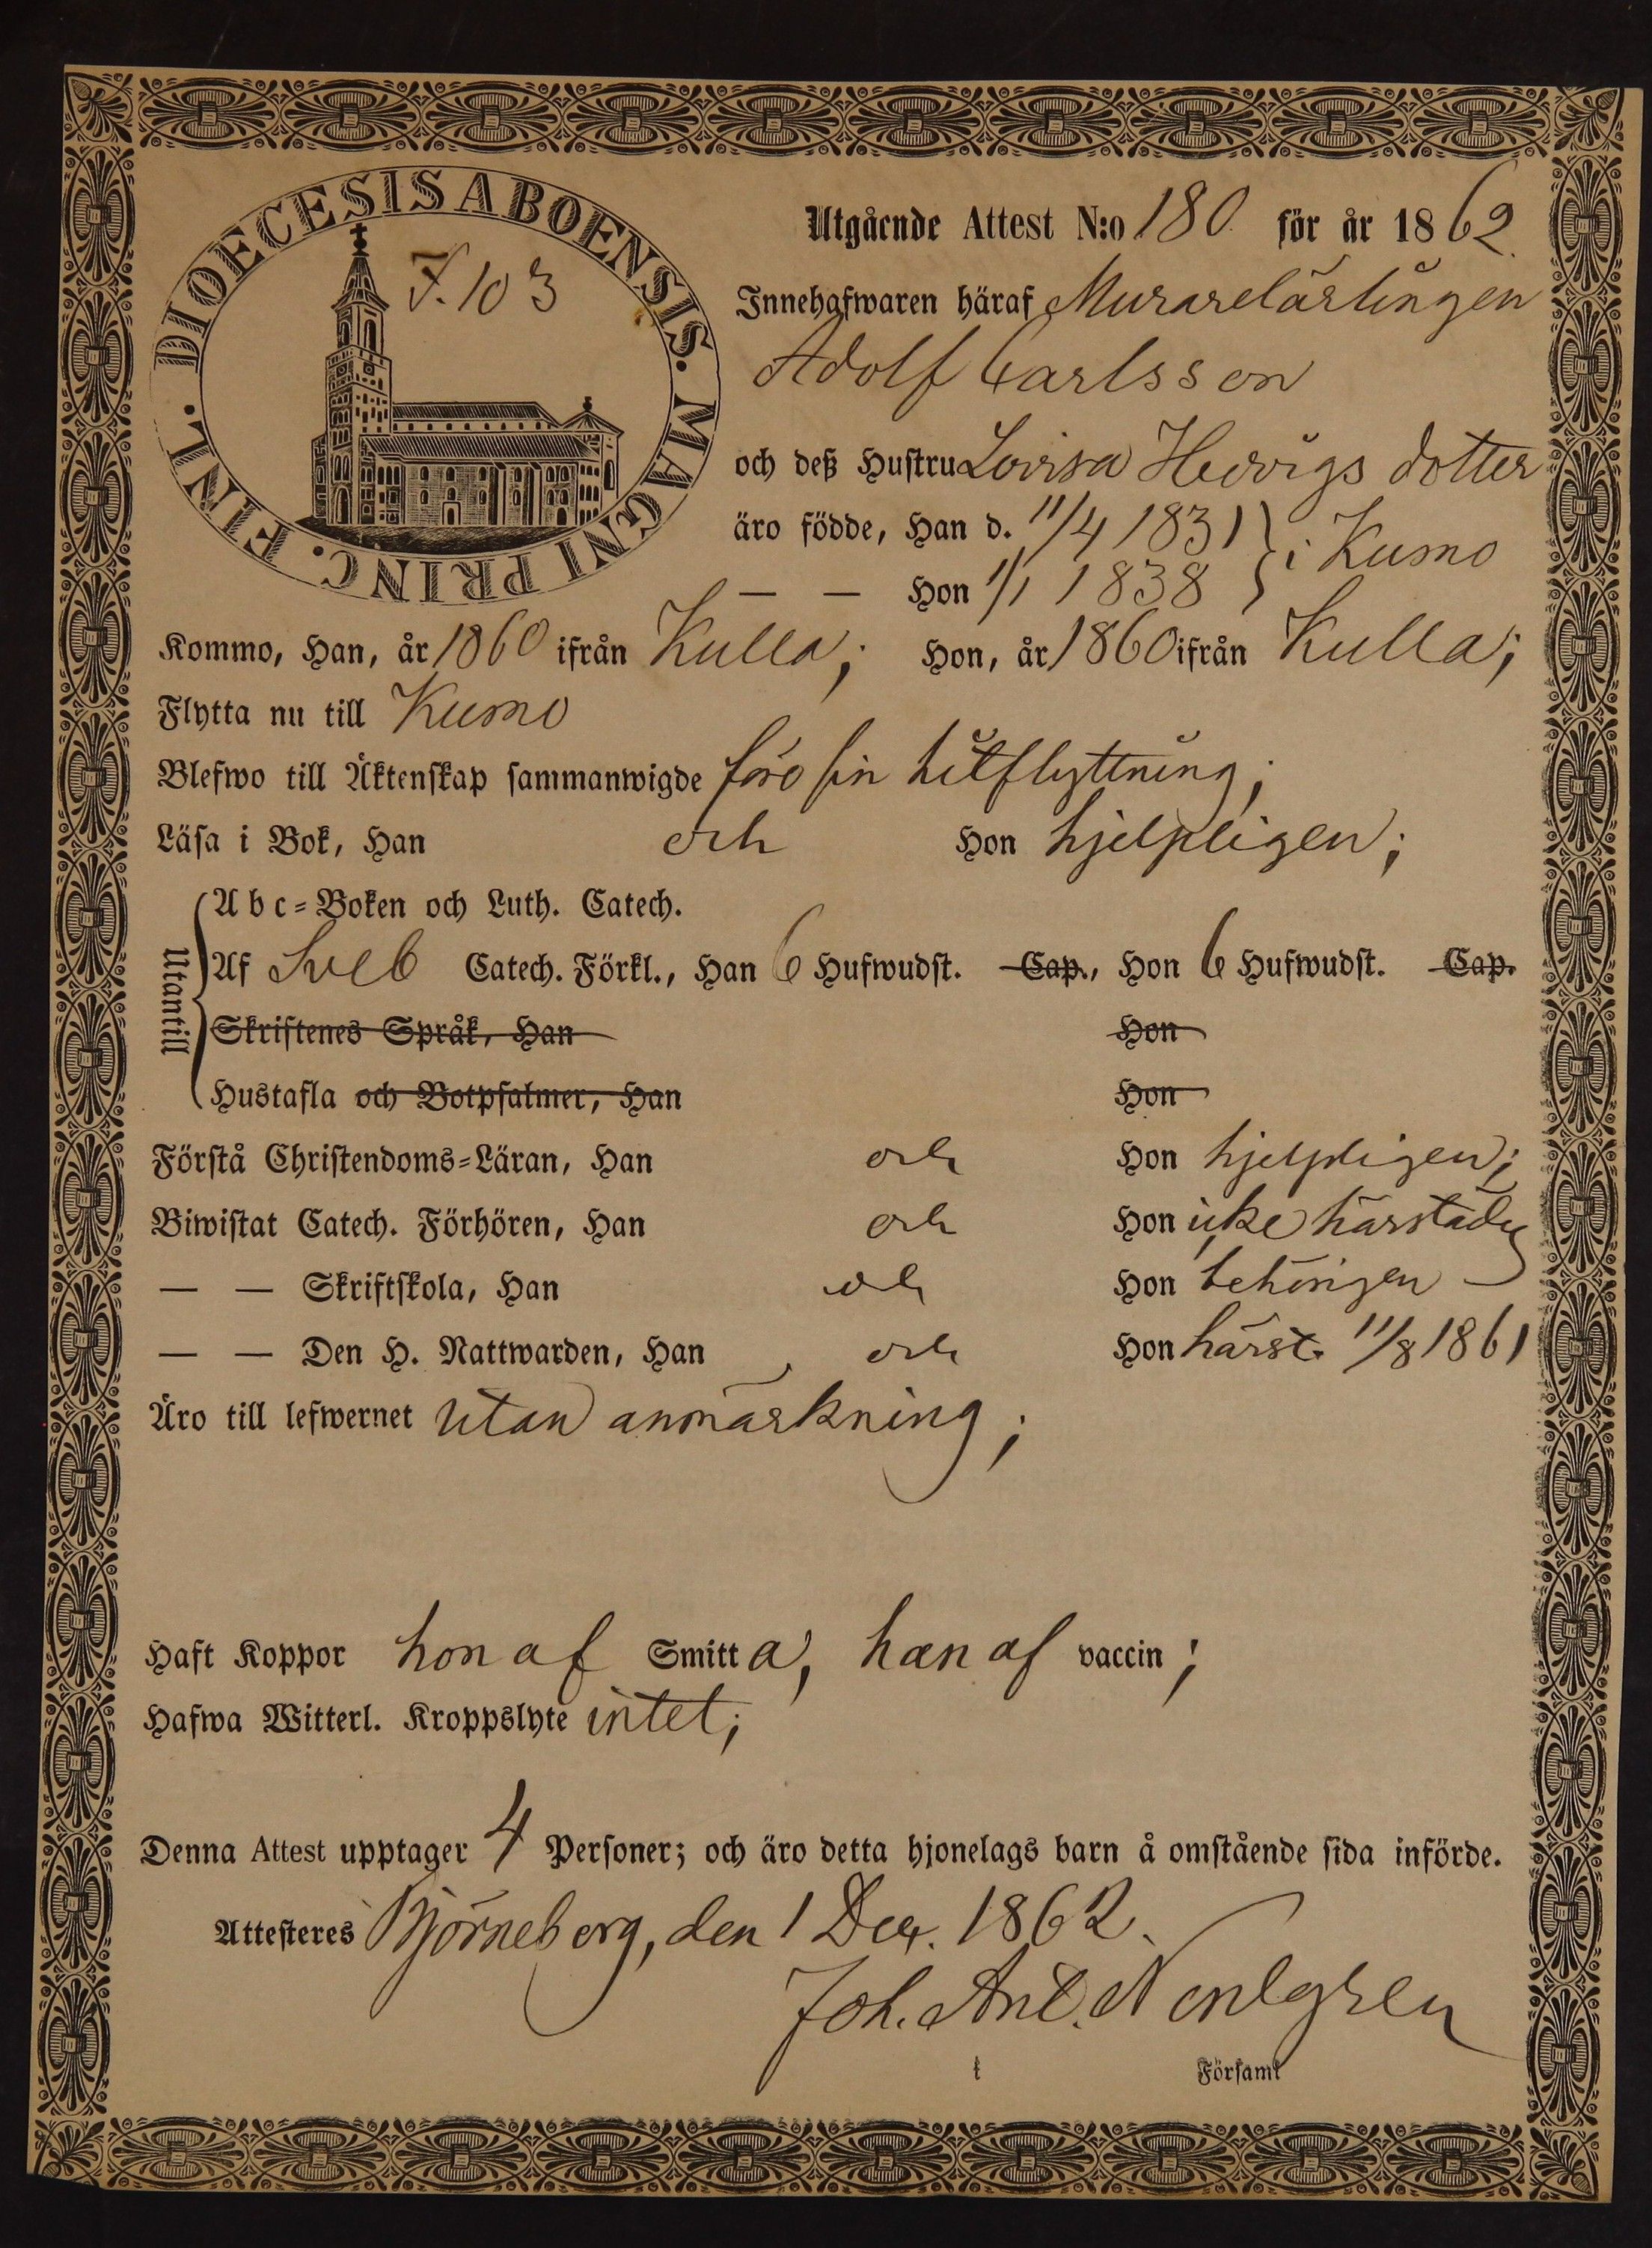 DIOECESIS ABOENSIS. MAGNI PRINC. FINL.
F. 103
Utgående Attest N:o 180 för år 1862
Innehafwaren häraf Murarelärlingen
Adolf Carlsson
och deß Hustru Lovisa Hedvigs dotter
äro födde, Han d. 11/4 1831 } i Kumo
— — Hon 1/1 1838
Kommo, Han, år 1860 ifrån Kulla; Hon, år 1860 ifrån Kulla;
Flytta nu till Kumo
Blefwo till Äktenskap sammanwigde före sin hitflyttning;
Läsa i Bok, Han och Hon hjelpligen;
Utantill
Abc-Boken och Luth. Catech.
Af Sveb Catech. Förkl., Han 6 Hufwudst. Cap., Hon 6 Hufwudst. Cap.
Skriftenes Språk, Han Hon
Hustafla och Botpsalmer, Han Hon
Förstå Christendoms-Läran, Han och Hon hjelpligen;
Biwistat Catech. Förhören, Han och Hon icke härstädes
— — Skriftskola, Han och Hon behörigen
— — Den H. Nattwarden, Han och Hon härst. 11/8 1861
Äro till lefwernet utan anmärkning;
Haft Koppor hon af Smitta, han af vaccin;
Hafwa Witterl. Kroppslyte intet;
Denna Attest upptager 4 Personer; och äro detta hjonelags barn å omstående sida införde.
Attesteres Björneborg, den 1 Dec. 1862.
Joh. Ant.
i Församl